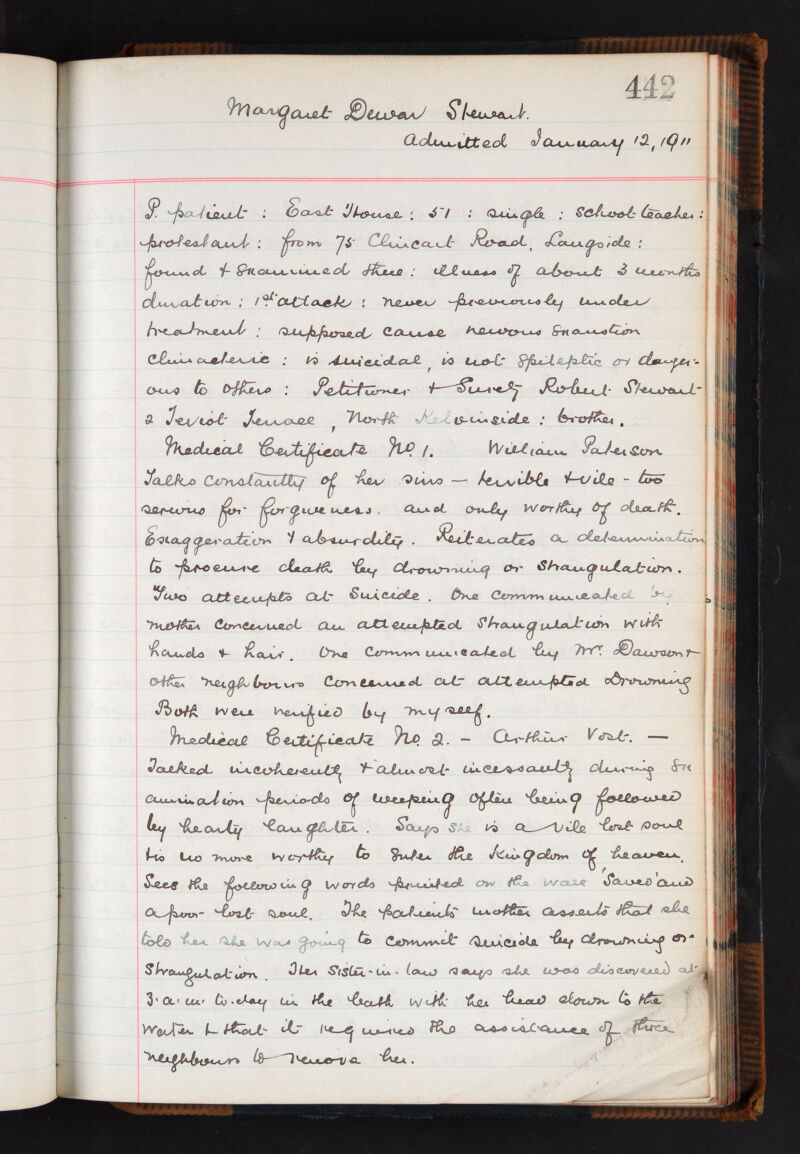 442
Margaret Dewar Stewart.
Admitted January 12, 1911
P. patient : East House : 51 : single : school teacher :
protestant : from 75 Clincart Road, Langside :
found & examined there : illness of about 3 months
duration : 1st attack : never previously under
treatment : supposed cause nervous exaustion
climacteric : is suicidal, is not epileptic or danger-
ous to others : Petitioner & Surety Robert Stewart
2 Teviot Terrace, North Kelvinside : brother.
Medical Certificate No. 1. William Paterson
Talks constantly of her sins – terrible & vile – too
serious for forgiveness. and only worthy of death.
Exaggeration & absurdity. Reiterates a determination
to procure death by drowning or strangulation.
Two attempts at Suicide. One communicated by
mother concerned an attempted strangulation with
hands & hair. One communicated by Mr. Dawson &
other neighbours concerned at attempted Drowning
Both were verified by myself.
Medical Certificate No. 2. – Arthur Vost. –
Talked incoherently & almost incessantly during ex
amination periods of weeping often being followed
by hearty laughter. Says she is a vile lost soul
& is no more worthy to enter the Kingdom of heaven.
Sees the following words printed on the wall 'Saved' and
a poor lost soul. The patients mother asserts that she
told her she was going to commit suicide by drowning or
strangulation. Her sister-in-law says she was discovered at
3.a.m. to-day in the bath with her head down to the
water & that it required the assistance of three
neighbours to remove her.